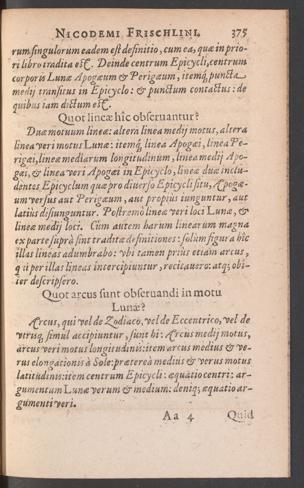 NICODEMI FRISCHLINI. 375
rum singulorum eadem est definitio, cum ea, quæ in prio-
ri libro tradita est. Deinde centrum Epicycli, centrum
corporis Lunæ Apogæum & Perigæum, itemq́; puncta
medij transitus in Epicyclo: & punctum contactus: de
quibus iam dictum est.
Quot lineæ hîc obseruantur?
Duæ motuum lineæ: altera linea medij motus, altera
linea veri motus Lunæ: itemq́; linea Apogæi, linea Pe-
rigæi, lineæ mediarum longitudinum, linea medij Apo-
gæi, & linea veri Apogæi in Epicyclo, lineæ duæ inclu-
dentes Epicyclum quæ pro diuerso Epicycli situ, Apogæ-
um versus aut Perigæum, aut propiùs iunguntur, aut
latiùs disiunguntur. Postremò lineæ veri loci Lunæ, &
lineæ medij loci. Cùm autem harum linearum magna
ex parte suprà sint traditæ definitiones: solùm figura hîc
illas lineas adumbrabo: vbi tamen priùs etiam arcus,
q̃ ii per illas lineas intercipiuntur, recitauero: atq; obi-
ter descripsero.
Quot arcus sunt obseruandi in motu
Lunæ?
Arcus, qui vel de Zodiaco, vel de Eccentrico, vel de
vtroq; simul accipiuntur, sunt hi: Arcus medij motus,
arcus veri motus longitudinis: item arcus medius & ve-
rus elongationis à Sole: præterea medius & verus motus
latitudinis: item centrum Epicycli: æquatio centri: ar-
gumentum Lunæ verum & medium: deniq; æquatio ar-
gumenti veri.
Aa 4 Quid